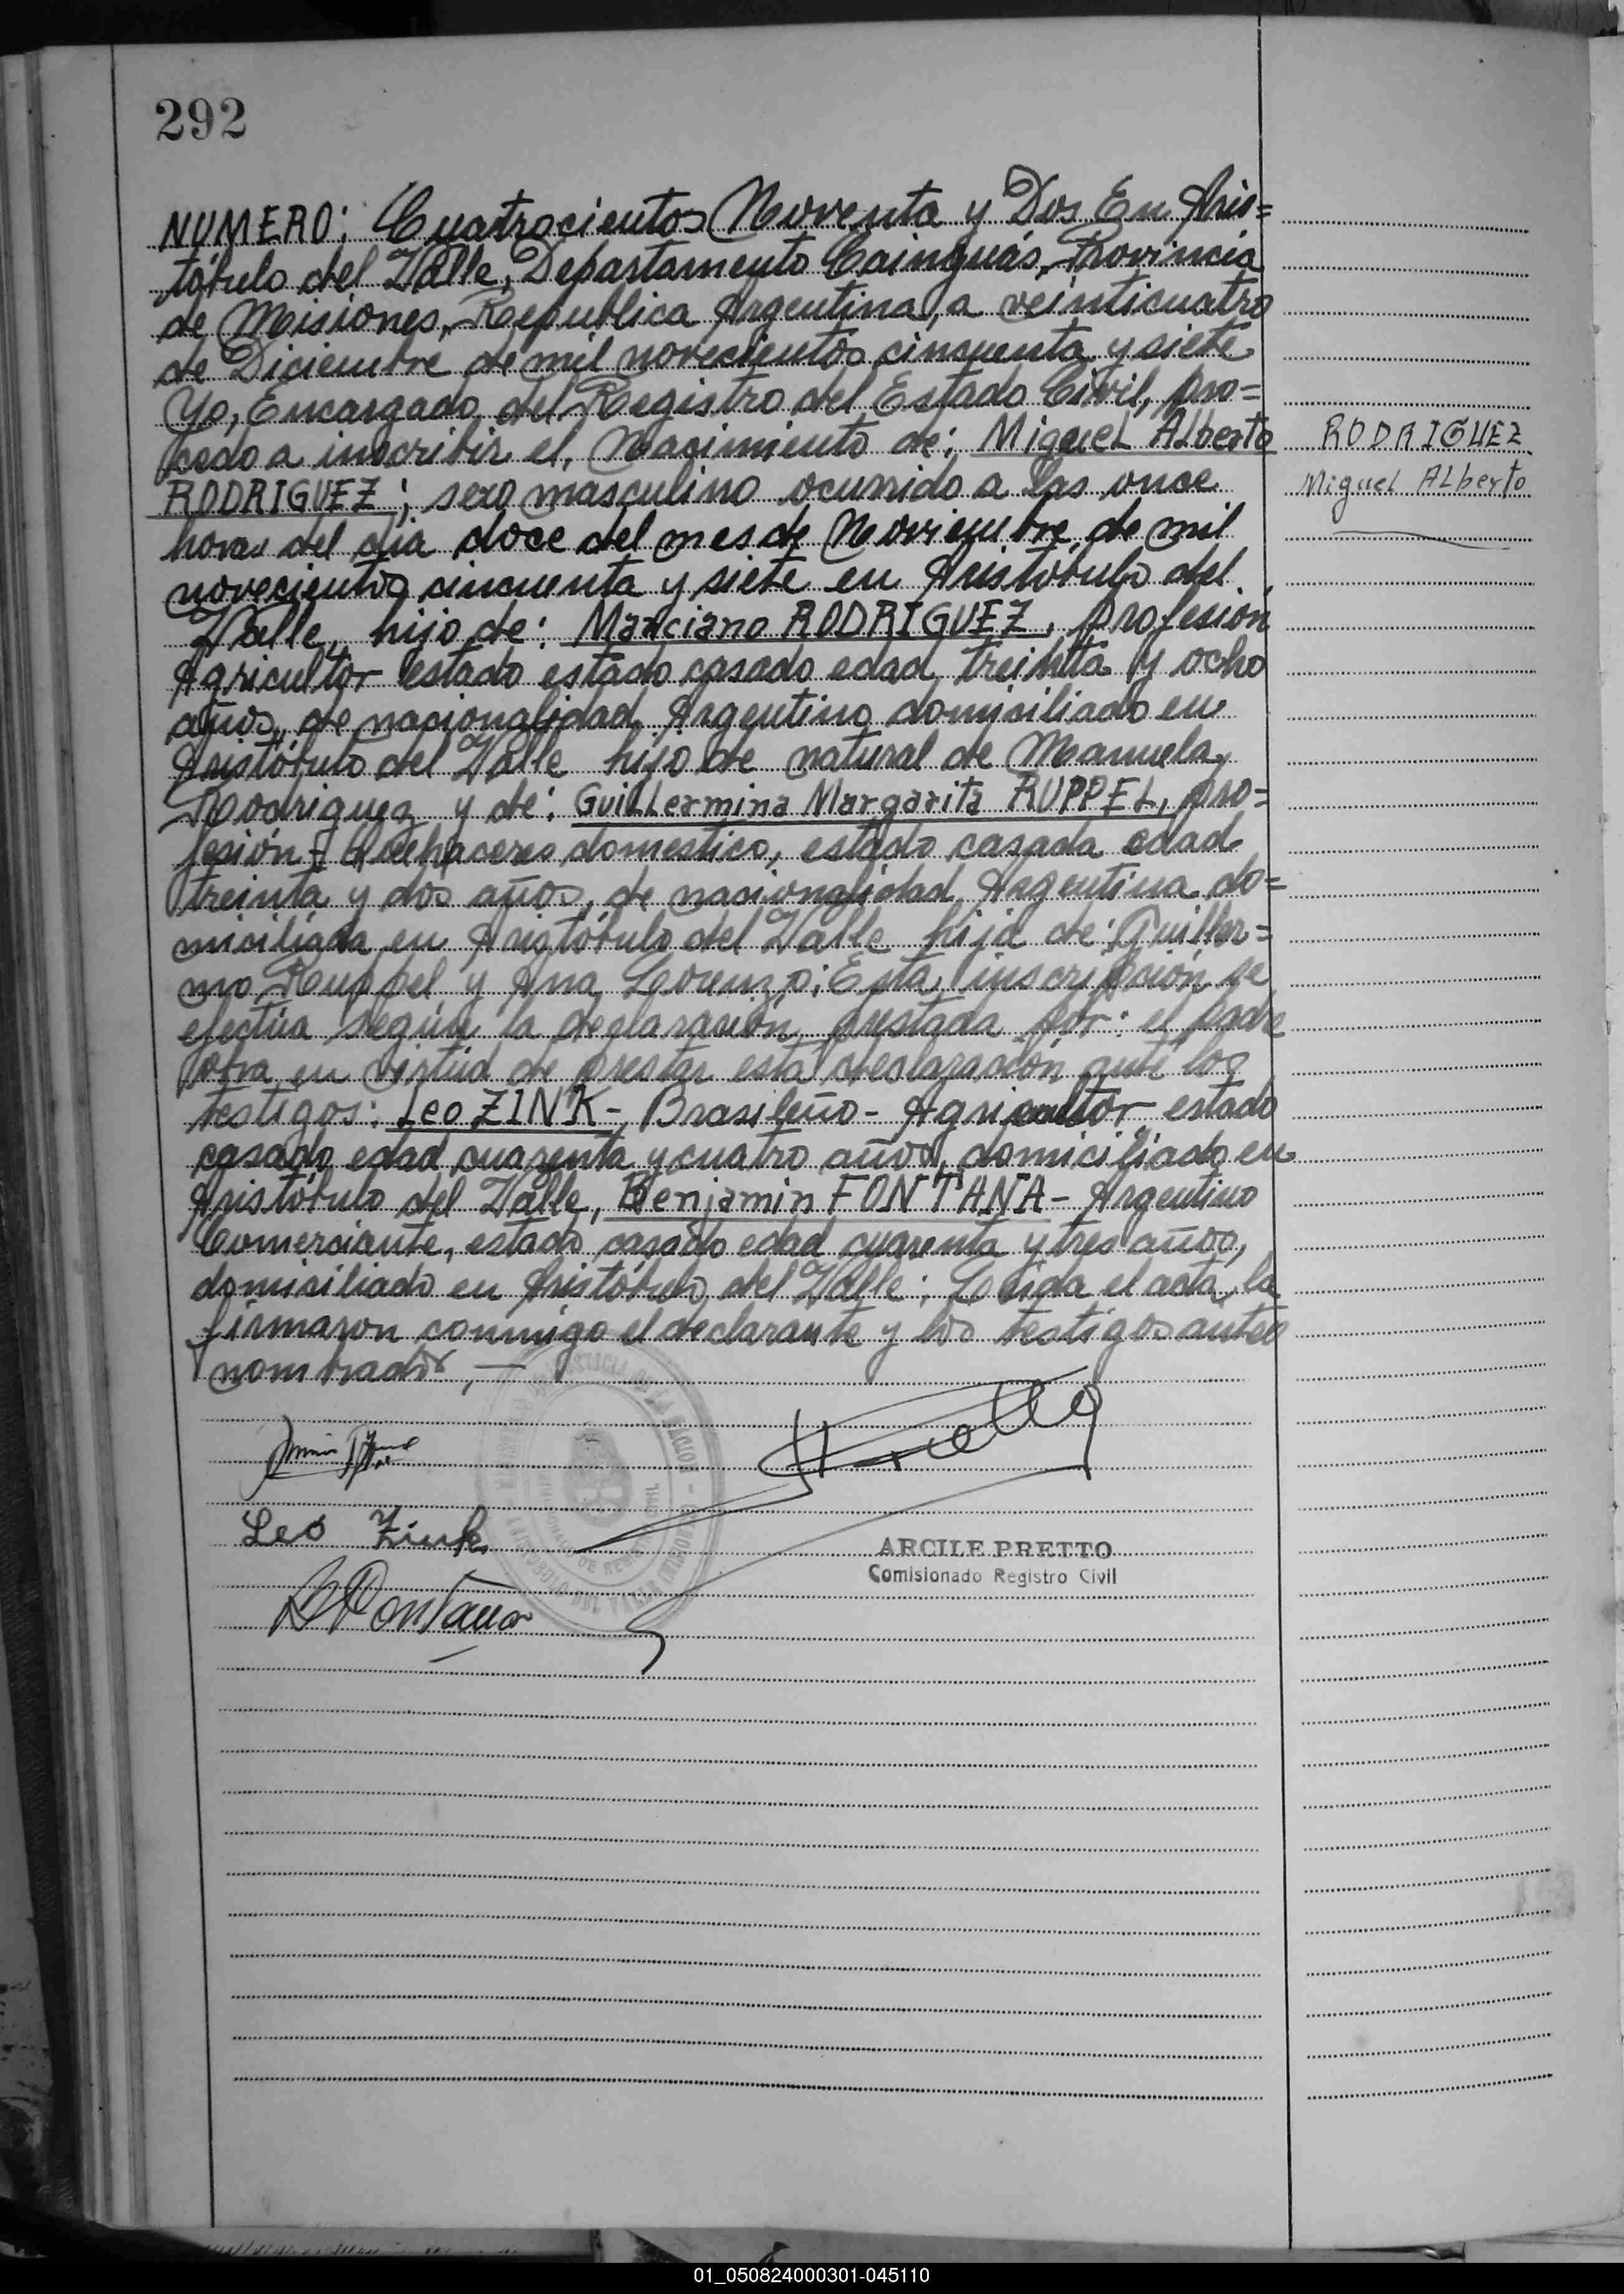 292
NUMERO: Cuatrocientos Noventa y Dos En Aris=
tóbulo del Valle, Departamento Cainguás, Provincia
de Misiones, Republica Argentina, a veinticuatro
de Diciembre de mil novecientos cincuenta y siete
Yo, Encargado del Registro del Estado Civil, pro=
cedo a inscribir el, Nacimiento de: Miguel Alberto
RODRIGUEZ; sexo masculino ocurrido a las once
horas del día doce del mes de Noviembre de mil
novecientos cincuenta y siete en Aristóbulo del
Valle, hijo de: Marciano RODRIGUEZ, profesión
Agricultor estado estado casado edad treinta y ocho
años, de nacionalidad Argentino domiciliado en
Aristóbulo del Valle hijo de natural de Manuela
Rodriguez y de: Guillermina Margarita RUPPEL, pro=
fesión - Quehaceres domestico, estado casada edad
treinta y dos años, de nacionalidad Argentina do=
miciliada en Aristóbulo del Valle hija de: Guiller=
mo Ruppel y Ana Lorenzo; Esta inscripción se
efectúa según la declaración prestada por: el padre
obra en virtud de prestar esta declaración ante los
testigos: Leo ZINK - Brasileño - Agricultor estado
casado edad cuarenta y cuatro años, domiciliado en
Aristóbulo del Valle, Benjamin FONTANA - Argentino
Comerciante, estado casado edad cuarenta y tres años,
domiciliado en Aristóbulo del Valle; Leida el acta, la
firmaron conmigo el declarante y los testigos antes
nombrados, —
RODRIGUEZ
Miguel Alberto
Leo Zink
B Fontana
ARCILE PRETTO
Comisionado Registro Civil
01_050824000301-045110